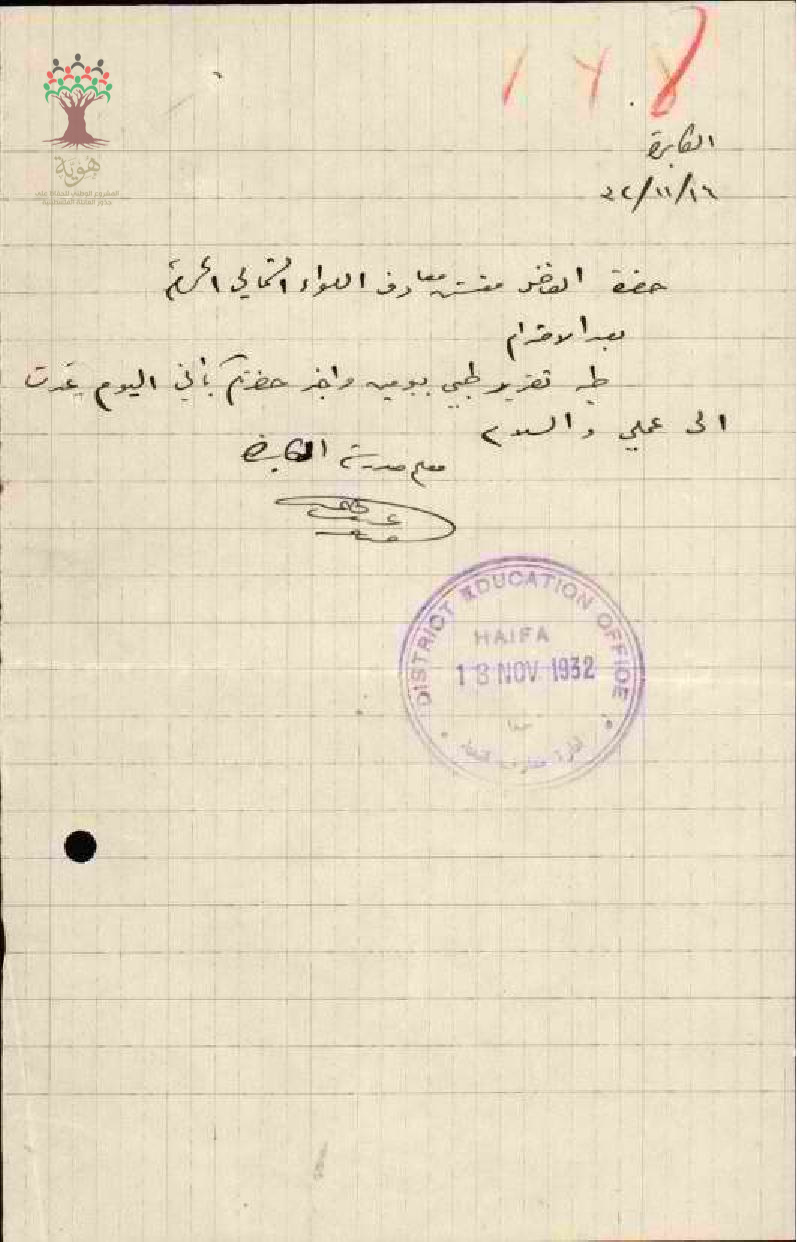 هوية
المشروع الوطني للحفاظ على
جذور العائلة الفلسطينية
الكابرة
٣٢/١١/١٦
حضرة الفاضل مفتش معارف اللواء الشمالي المحترم
بعد الاحترام
طيه تقرير طبي بيومين واخبر حضرتكم بأني اليوم عدت
الى عملي والسلام
معلم مدرسة الكابرة
DISTRICT EDUCATION OFFICE
HAIFA
18 NOV 1932
حيفا
ادارة معارف